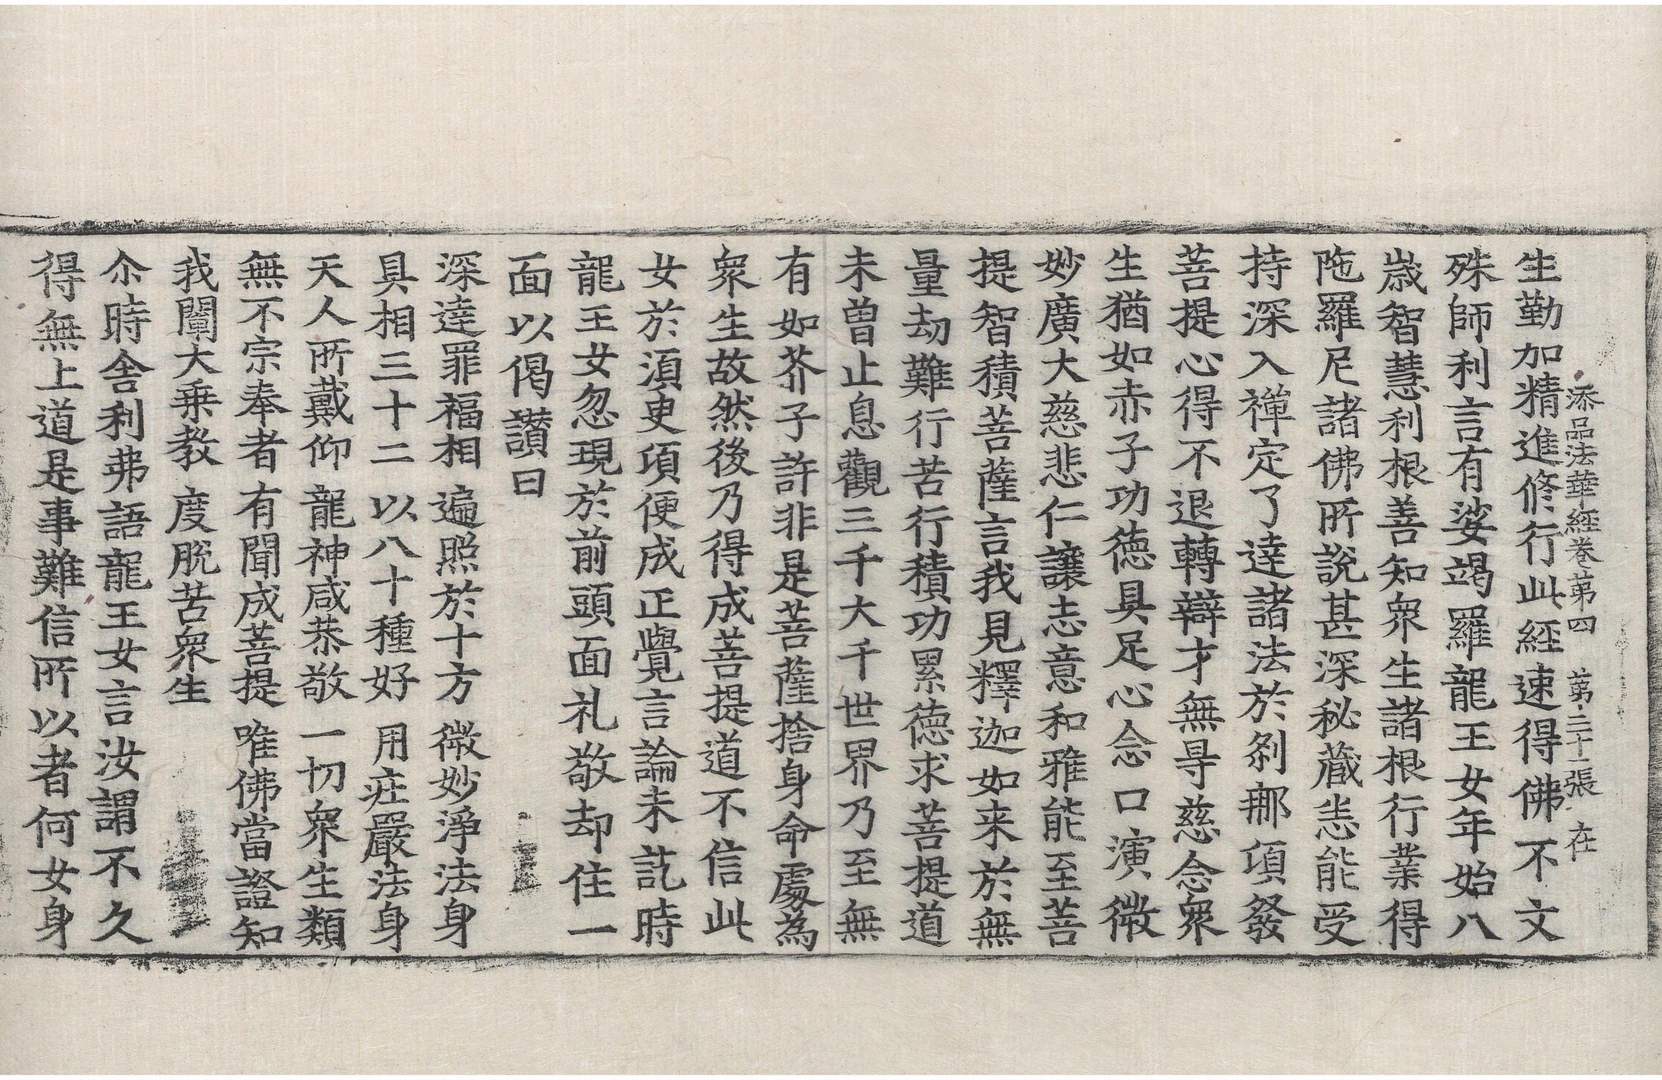 添品法華經卷苐四　苐二十二張　在
生勤加精進修行此經速得佛不文
殊師利言有娑竭羅龍王女年始八
歲智慧利根善知衆生諸根行業得
陁羅尼諸佛所說甚深秘藏悉能受
持深入禪定了達諸法於刹那項發
菩提心得不退轉辯才無㝵慈念衆
生猶如赤子功德具足心念口演微
妙廣大慈悲仁讓志意和雅能至菩
提智積菩薩言我見釋迦如来於無
量劫難行苦行積功累德求菩提道
未曾止息觀三千大千世界乃至無
有如芥子許非是菩薩捨身命處為
衆生故然後乃得成菩提道不信此
女於湏臾項便成正覺言論未訖時
龍王女忽現於前頭面礼敬却住一
面以偈讃曰
深達罪福相　遍照於十方　微妙淨法身
具相三十二　以八十種好　用㽵嚴法身
天人所戴仰　龍神咸恭敬　一切衆生類
無不宗奉者　有聞成菩提　唯佛當證知
我闡大乗教　度脫苦衆生
尒時舍利弗語龍王女言汝謂不久
得無上道是事難信所以者何女身